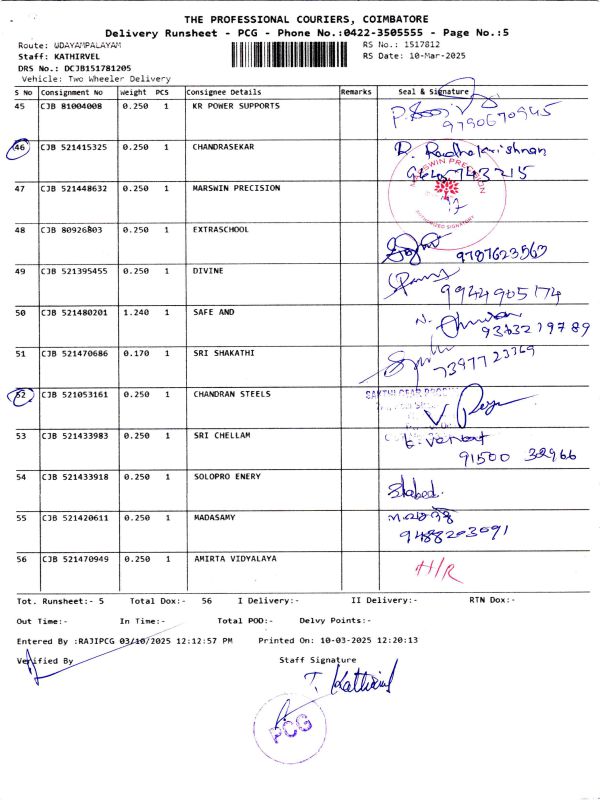 THE PROFESSIONAL COURIERS, COIMBATORE
Delivery Runsheet - PCG - Phone No.:0422-3505555 - Page No.:5
Route: UDAYAMPALAYAM RS No.: 1517812
Staff: KATHIRVEL RS Date: 10-Mar-2025
DRS No.: DCJB151781205
Vehicle: Two Wheeler Delivery
S No Consignment No Weight PCS Consignee Details Remarks Seal & Signature
45 CJB 81004008 0.250 1 KR POWER SUPPORTS
9790670945
46 CJB 521415325 0.250 1 CHANDRASEKAR R. Radhakrishnan
743215
47 CJB 521448632 0.250 1 MARSWIN PRECISION
MARSWIN PRECISION
AUTHORIZED SIGNATORY
48 CJB 80926803 0.250 1 EXTRASCHOOL
9787623563
49 CJB 521395455 0.250 1 DIVINE
9944905174
50 CJB 521480201 1.240 1 SAFE AND
51 CJB 521470686 0.170 1 SRI SHAKATHI
7397723369
52 CJB 521053161 0.250 1 CHANDRAN STEELS
53 CJB 521433983 0.250 1 SRI CHELLAM
91500 32966
54 CJB 521433918 0.250 1 SOLOPRO ENERY
55 CJB 521420611 0.250 1 MADASAMY
9488203091
56 CJB 521470949 0.250 1 AMIRTA VIDYALAYA H/R
Tot. Runsheet:- 5 Total Dox:- 56 I Delivery:- II Delivery:- RTN Dox:-
Out Time:- In Time:- Total POD:- Delvy Points:-
Entered By :RAJIPCG 03/10/2025 12:12:57 PM Printed On: 10-03-2025 12:20:13
Verified By Staff Signature
T. Kathirvel
PCG